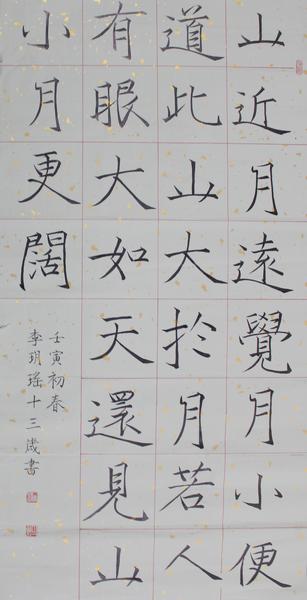 山近月遠覺月小便
道此山大於月若人
有眼大如天還見山
小月更闊
壬寅初春
李玥瑤十三歲書